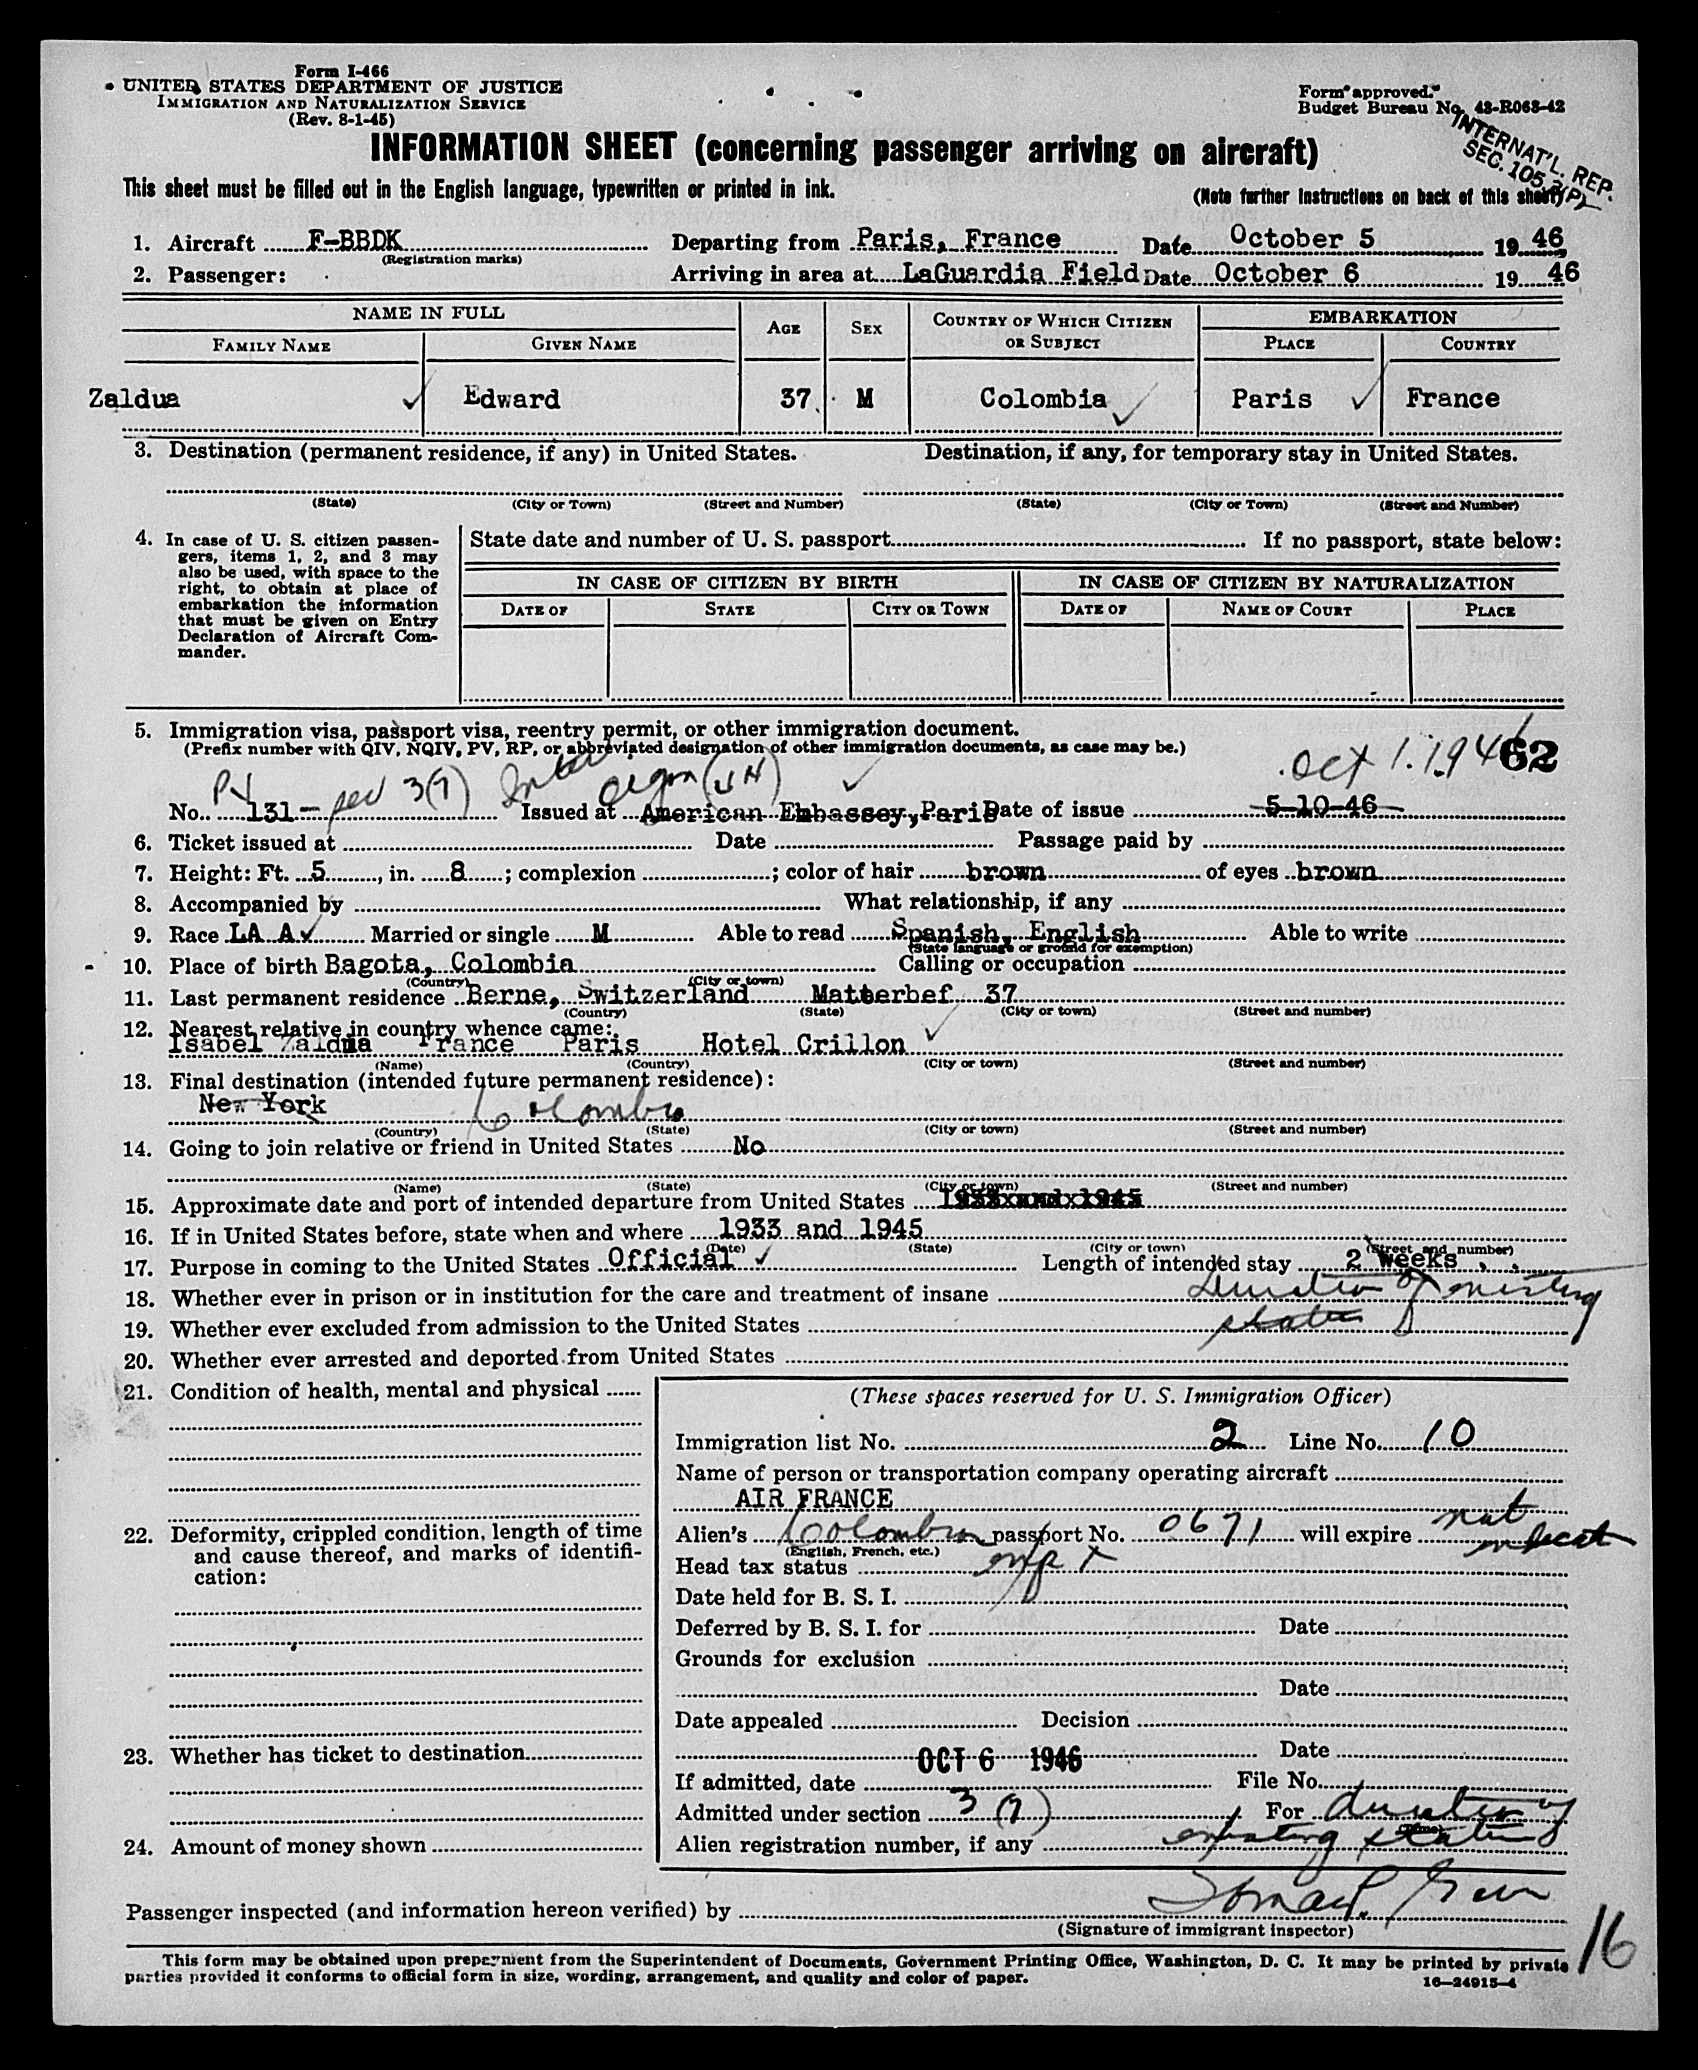 Form I-466
UNITED STATES DEPARTMENT OF JUSTICE
IMMIGRATION AND NATURALIZATION SERVICE
(Rev. 8-1-45)
Form approved.
Budget Bureau No. 43-R063-42
INTERNAT'L. REP.
SEC. 105.3(P)
INFORMATION SHEET (concerning passenger arriving on aircraft)
This sheet must be filled out in the English language, typewritten or printed in ink.
(Note further instructions on back of this sheet)
1. Aircraft F-BBDK Departing from Paris, France Date October 5 1946
(Registration marks)
2. Passenger: Arriving in area at LaGuardia Field Date October 6 1946
NAME IN FULL AGE SEX COUNTRY OF WHICH CITIZEN OR SUBJECT EMBARKATION
FAMILY NAME GIVEN NAME PLACE COUNTRY
Zaldua Edward 37 M Colombia Paris France
3. Destination (permanent residence, if any) in United States. Destination, if any, for temporary stay in United States.
(State) (City or Town) (Street and Number) (State) (City or Town) (Street and Number)
4. In case of U. S. citizen passen-
gers, items 1, 2, and 3 may
also be used, with space to the
right, to obtain at place of
embarkation the information
that must be given on Entry
Declaration of Aircraft Com-
mander.
State date and number of U. S. passport If no passport, state below:
IN CASE OF CITIZEN BY BIRTH IN CASE OF CITIZEN BY NATURALIZATION
DATE OF STATE CITY OR TOWN DATE OF NAME OF COURT PLACE
5. Immigration visa, passport visa, reentry permit, or other immigration document.
(Prefix number with QIV, NQIV, PV, RP, or abbreviated designation of other immigration documents, as case may be.)
Oct 1. 1946 62
PV 3(7) Inter Orgn (UN)
No. 131- Issued at American Embassey, Paris Date of issue 5-10-46
6. Ticket issued at Date Passage paid by
7. Height: Ft. 5, in. 8; complexion ; color of hair brown of eyes brown
8. Accompanied by What relationship, if any
9. Race LA A Married or single M Able to read Spanish, English Able to write
(State language or ground for exemption)
10. Place of birth Bagota, Colombia Calling or occupation
(Country) (City or town)
11. Last permanent residence Berne, Switzerland Matterbef 37
(Country) (State) (City or town) (Street and number)
12. Nearest relative in country whence came:
Isabel Zaldua France Paris Hotel Crillon
(Name) (Country) (City or town) (Street and number)
13. Final destination (intended future permanent residence):
New York Colombia
(Country) (State) (City or town) (Street and number)
14. Going to join relative or friend in United States No
(Name) (State) (City or town) (Street and number)
15. Approximate date and port of intended departure from United States 1933 and 1945
16. If in United States before, state when and where 1933 and 1945
(Date) (State) (City or town) (Street and number)
17. Purpose in coming to the United States Official Length of intended stay 2 weeks
18. Whether ever in prison or in institution for the care and treatment of insane Duration of existing
19. Whether ever excluded from admission to the United States status
20. Whether ever arrested and deported from United States
21. Condition of health, mental and physical
(These spaces reserved for U. S. Immigration Officer)
Immigration list No. 2 Line No. 10
Name of person or transportation company operating aircraft
AIR FRANCE
22. Deformity, crippled condition, length of time
and cause thereof, and marks of identifi-
cation:
Alien's Colombian passport No. 0671 will expire not
(English, French, etc.)
Head tax status
Date held for B. S. I.
Deferred by B. S. I. for Date
Grounds for exclusion
Date
Date appealed Decision
23. Whether has ticket to destination
Date
OCT 6 1946
If admitted, date File No.
Admitted under section 3 (7) For duration of
24. Amount of money shown
Alien registration number, if any existing status
Passenger inspected (and information hereon verified) by
(Signature of immigrant inspector)
16
This form may be obtained upon prepayment from the Superintendent of Documents, Government Printing Office, Washington, D. C. It may be printed by private
parties provided it conforms to official form in size, wording, arrangement, and quality and color of paper.
16-24915-4